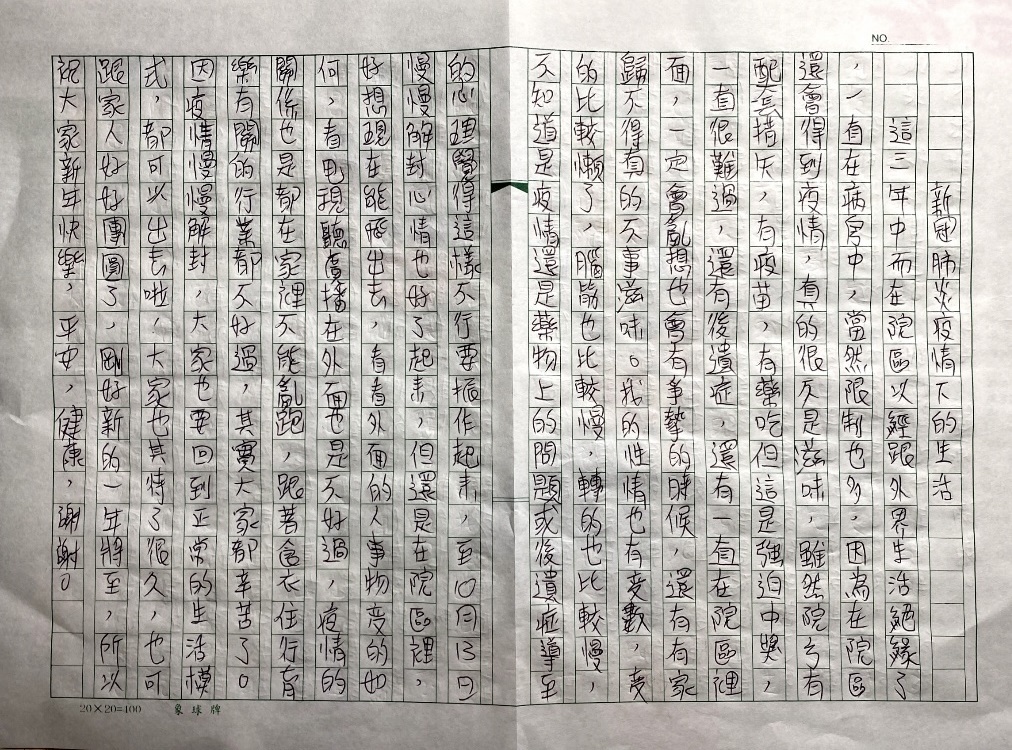 NO.
新冠肺炎疫情下的生活
這三年中而在院區以經跟外界生活絕緣了
，一直在病房中，當然限制也多，因為在院區
還會得到疫情，真的很不是滋味，雖然院方有
配套措失，有疫苗，有藥吃但這是強迫中獎，
一直很難過，還有後遺症，還有一直在院區裡
面，一定會亂想也會有爭摯的時候，還有有家
歸不得真的不事滋味。我的性情也有變數，變
的比較懶了，腦筋也比較慢，轉的也比較慢，
不知道是疫情還是藥物上的問題或後遺症導至
的心理覺得這樣不行要振作起來，至10月13日
慢慢解封心情也好了起來，但還是在院區裡，
好想現在能夠出去，看看外面的人事物變的如
何，看電視聽廣播在外面也是不好過，疫情的
關係也是都在家裡不能亂跑，跟著食衣住行育
樂有關的行業都不好過，其實大家都辛苦了。
因疫情慢慢解封，大家也要回到正常的生活模
式，都可以出去啦，大家也其待了很久，也可
跟家人好好團圓了，剛好新的一年將至，所以
祝大家新年快樂，平安，健康，謝謝。
20×20=400 象球牌